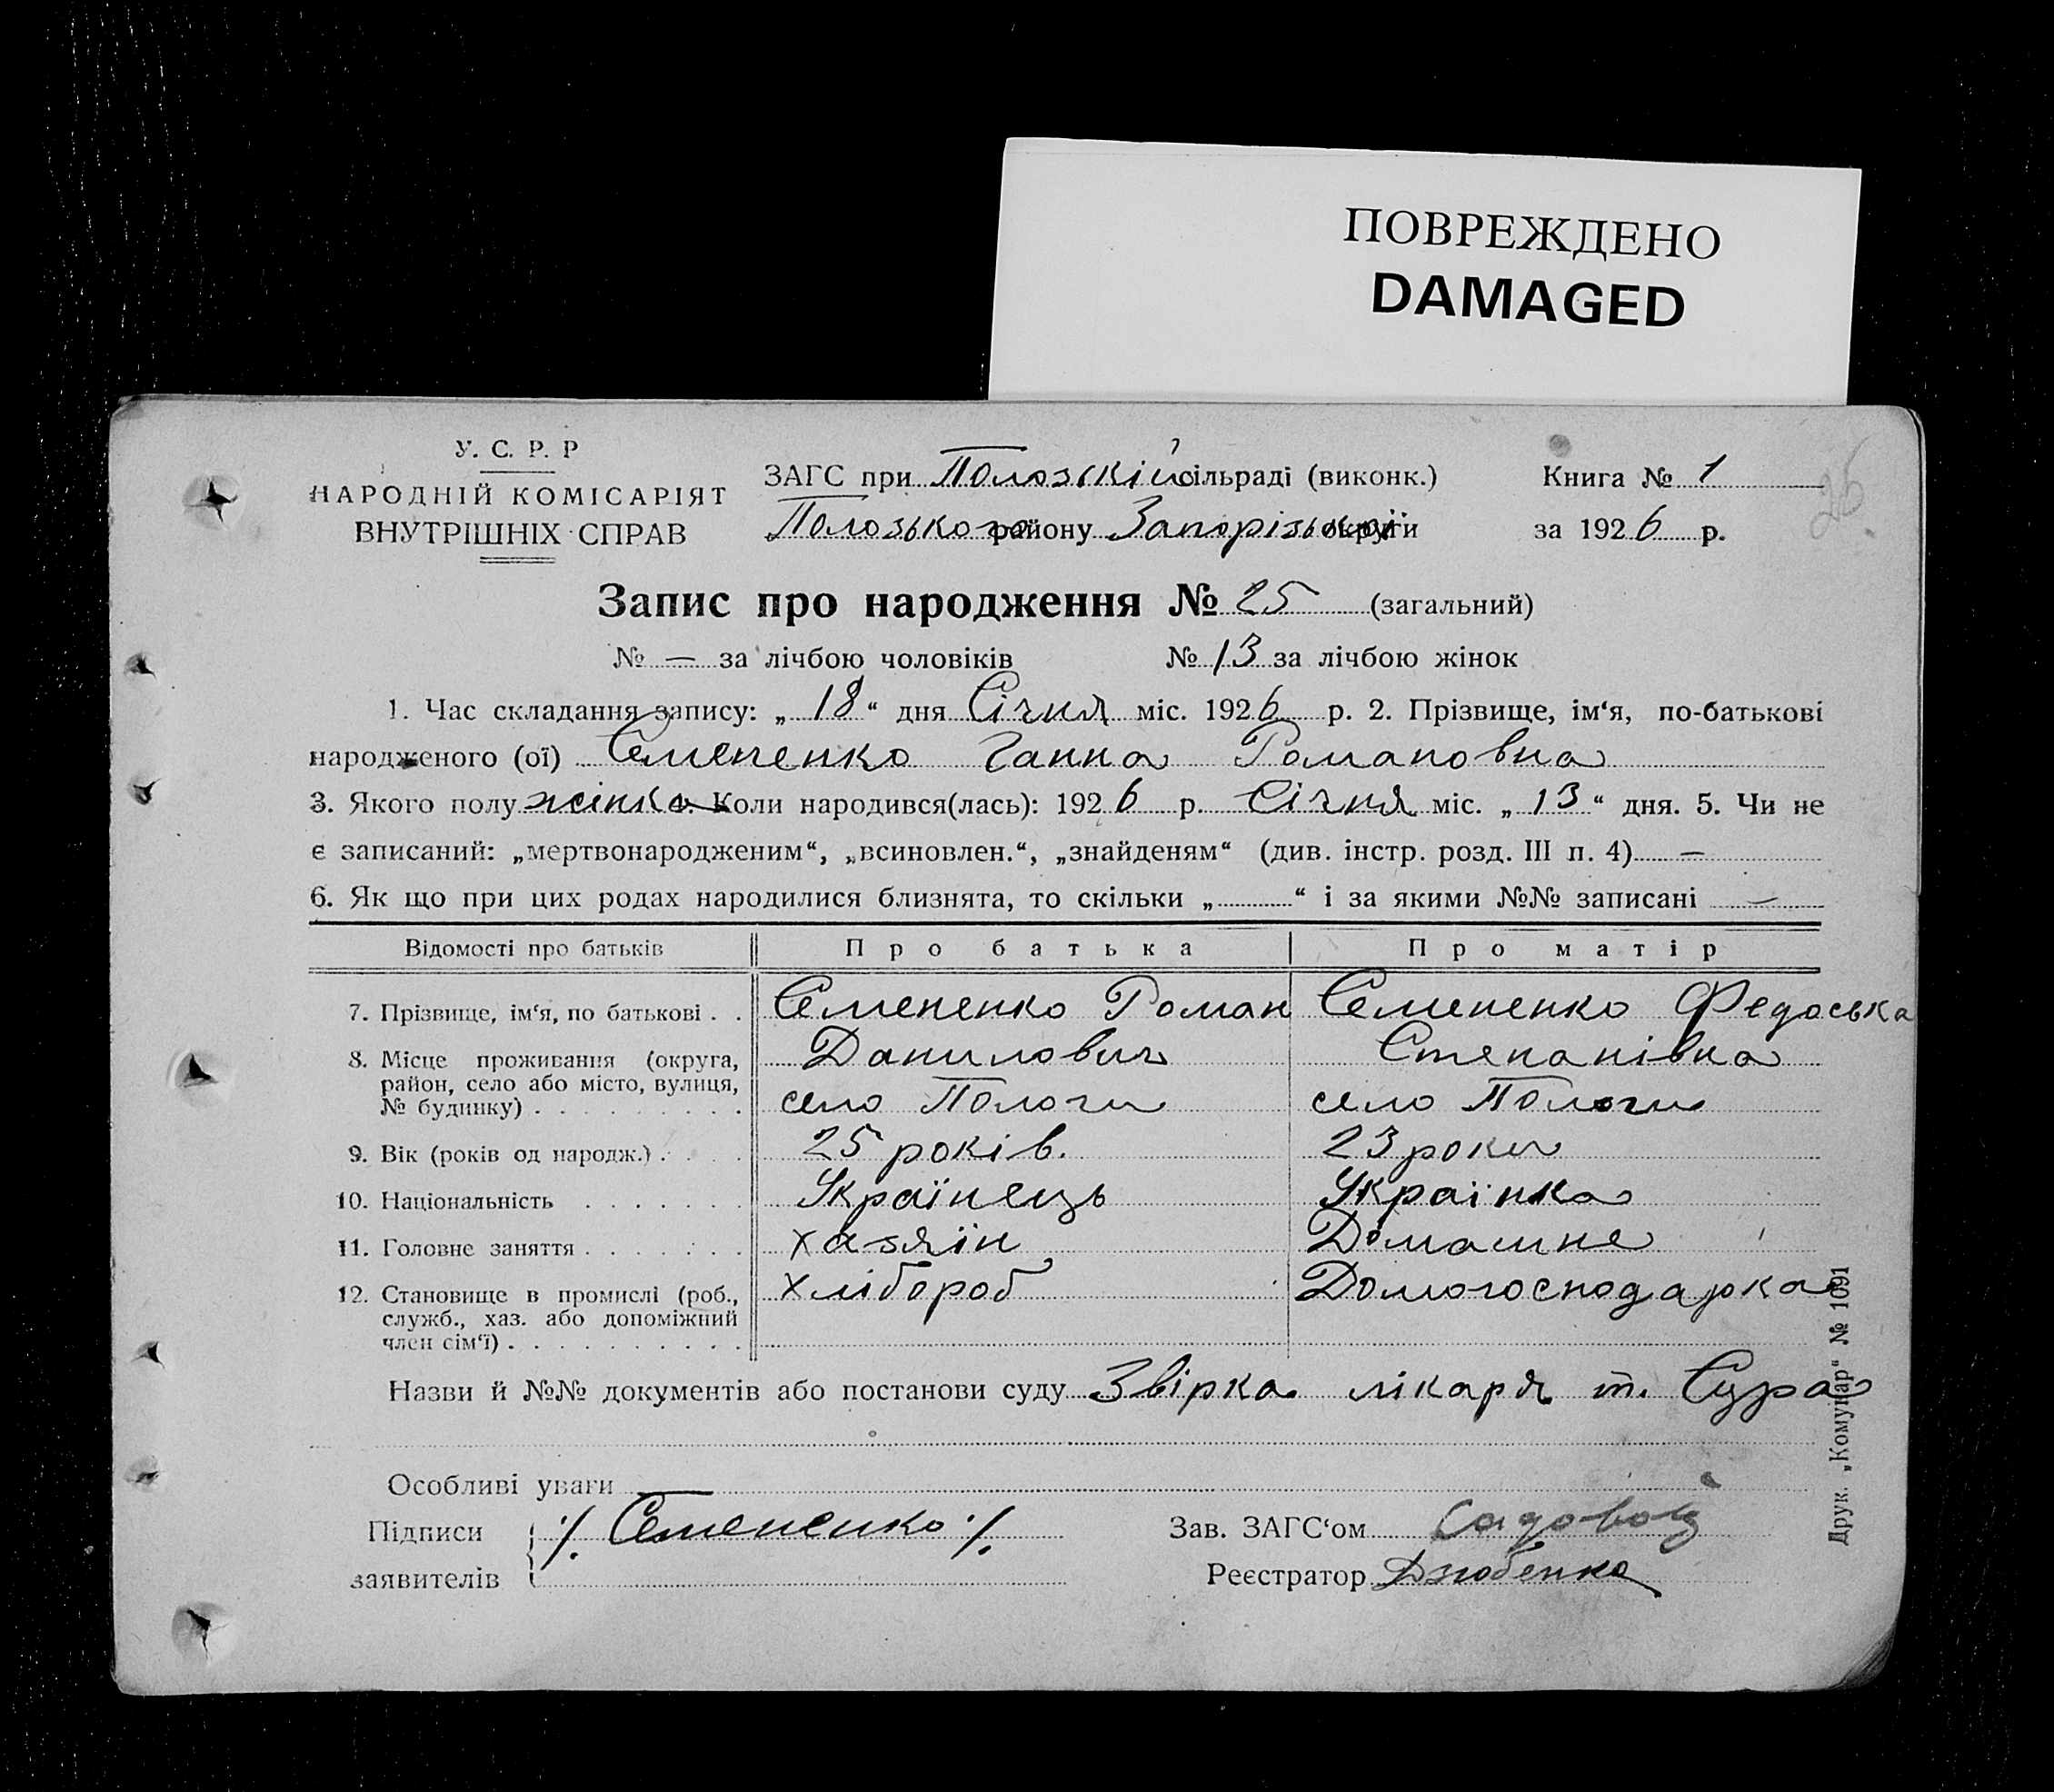 ПОВРЕЖДЕНО
DAMAGED
У. С. Р. Р
НАРОДНІЙ КОМІСАРІЯТ
ВНУТРІШНІХ СПРАВ
ЗАГС при Полозькій сільраді (виконк.)
Полозького району Запорізької округи
Книга № 1
за 1926 р.
25
Запис про народження № 25 (загальний)
№ — за лічбою чоловіків № 13 за лічбою жінок
1. Час складання запису: „ 18 “ дня Січня міс. 1926 р. 2. Прізвище, ім‘я, по-батькові
народженого (ої) Семененко Ганна Романовна
3. Якого полу жінка 4. Коли народився(лась): 1926 р. Січня міс. „ 13 “ дня. 5. Чи не
є записаний: „мертвонародженим“, „всиновлен.“, „знайденям“ (див. інстр. розд. III п. 4) —
6. Як що при цих родах народилися близнята, то скільки „ “ і за якими №№ записані —
Відомості про батьків Про батька Про матір
7. Прізвище, ім‘я, по батькові . . Семененко Роман Семененко Федоська
Данилович Степанівна
8. Місце проживання (округа,
район, село або місто, вулиця,
№ будинку) . . . . . . . . . село Пологи село Пологи
9. Вік (років од народж.) . . . . 25 років. 23 роки
10. Національність . . . . . . . Українець Українка
11. Головне заняття . . . . . . . хазяїн Домашнє
12. Становище в промислі (роб.,
служб., хаз. або допоміжний
член сім‘ї) . . . . . . . . . . хлібороб Домогосподарка
Назви й №№ документів або постанови суду Звірка лікаря т. Сура
Особливі уваги —
Підписи
заявителів
./. Семененко ./.
Зав. ЗАГС‘ом Садовой
Реєстратор Дзюбенко
Друк. „Комунар“ № 1091